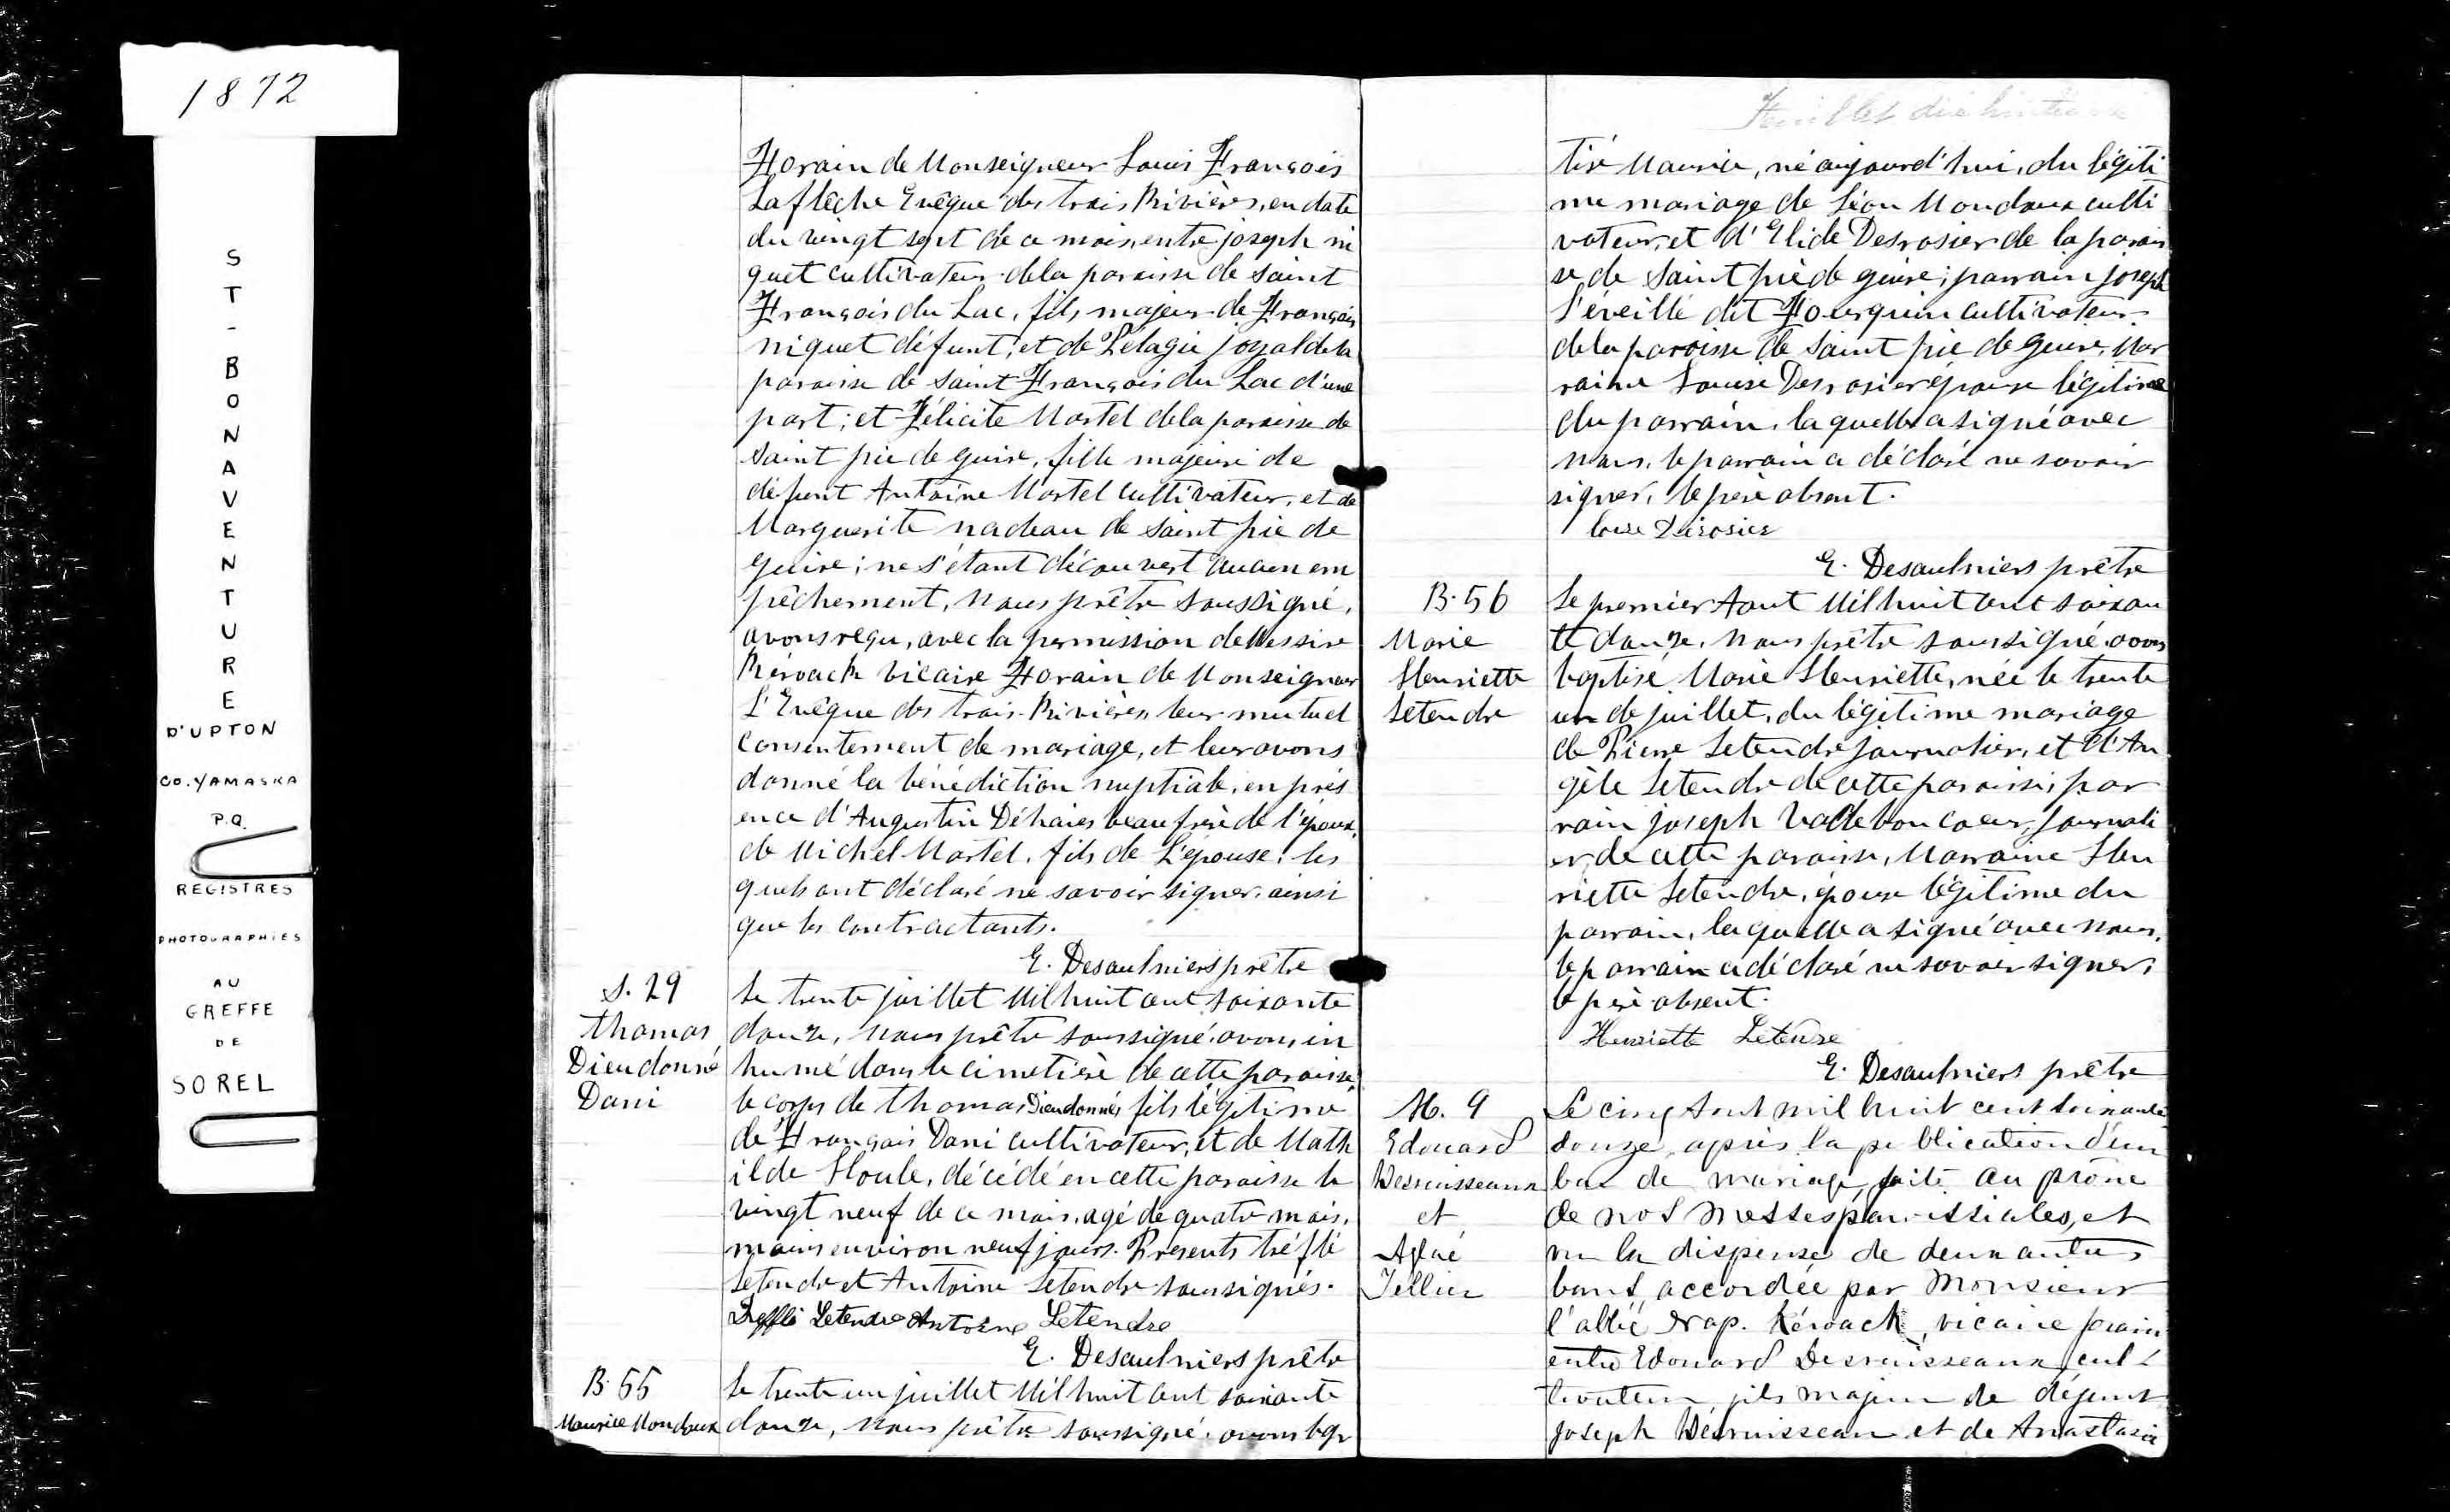 1872
ST-BONAVENTURE
D'UPTON
CO. YAMASKA
P.Q.
REGISTRES
PHOTOGRAPHIES
AU
GREFFE
DE
SOREL
Forain de Monseigneur Louis François
Laflêche Evêque des trois Rivières, en date
du vingt sept de ce mois, entre joseph ni
quet cultivateur de la paroisse de saint
François du Lac, fils majeur de François
niquet défunt, et de Pélagie joyal de la
paroisse de saint François du Lac d'une
part; et Félicité Martel de la paroisse de
saint pie de guire, fille majeure de
défunt Antoine Martel cultivateur, et de
Marguerite nadeau de saint pie de
guire; ne s'étant découvert aucun em
pêchement, nous prêtre soussigné,
avons reçu, avec la permission de Messire
Kérouack vicaire Forain de Monseigneur
L'Evêque des trois-Rivières leur mutuel
consentement de mariage, et leur avons
donné la bénédiction nuptiale, en prés
ence d'Augustin Déhaies beaufrère de l'époux,
de Michel Martel, fils de L'épouse; les
quels ont déclaré ne savoir signer, ainsi
que les contractants.
E. Desaulniers prêtre
S. 29
Thomas
Dieudonné
Dani
Le trente juillet Mil huit cent soixante
douze, nous prêtre soussigné, avons in
humé dans le cimetière de cette paroisse,
le corps de Thomas Dieudonnés fils légitime
de François Dani cultivateur, et de Math
ilde Houle, décédé en cette paroisse le
vingt neuf de ce mois, agé de quatre mois,
moins environ neuf jours. Presents tréflé
Letendre et Antoine Letendre soussignés.
Treffle Letendre Antoine Letendre
E. Desaulniers prêtre
B. 55
Maurice Mondoux
Le trente un juillet Mil huit cent soixante
douze, nous prêtre soussigné, avons bap
Feuillet dix huitième
tisé Maurice, né aujourd'hui, du légiti
me mariage de Léon Mondoux culti
vateur, et d'Elide Desrosier de la parois
se de saint pie de guire; parrain joseph
L'éveillé dit Fourquin cultivateur
de la paroisse de saint pie de guire, Mar
raine Louise Desrosier épouse légitime
du parrain, la quelle a signé avec
nous, le parrain a déclaré ne savoir
signer, le père absent.
Louise Desrosier
E. Desaulniers prêtre
B. 56
Marie
Henriette
Letendre
Le premier Aout Mil huit cent soixan
te douze, nous prêtre soussigné avons
baptisé Marie Henriette, née le trente
un de juillet, du légitime mariage
de Pierre Letendre journalier, et d'An
gèle Letendre de cette paroisse; par
rain joseph Vadeboncoeur, journali
er, de cette paroisse, Marraine Hen
riette Letendre, épouse légitime du
parrain, laquelle a signé avec nous,
le parrain a déclaré ne savoir signer,
le père absent.
Henriette Letendre
E. Desaulniers prêtre
M. 9
Edouard
Desruisseaux
et
Aglaé
Tellier
Le cinq Aout mil huit cent soixante
douze, après la publication d'un
ban de mariage, faite au prône
de nos Messes paroissiales, et
vu la dispense de deux autres
bans, accordée par Monsieur
l'abbé Nap. Kérouack, vicaire forain
entre Edouard Desruisseaux, cul-
tivateur, fils majeur de défunt
Joseph Desruisseau et de Anastasie